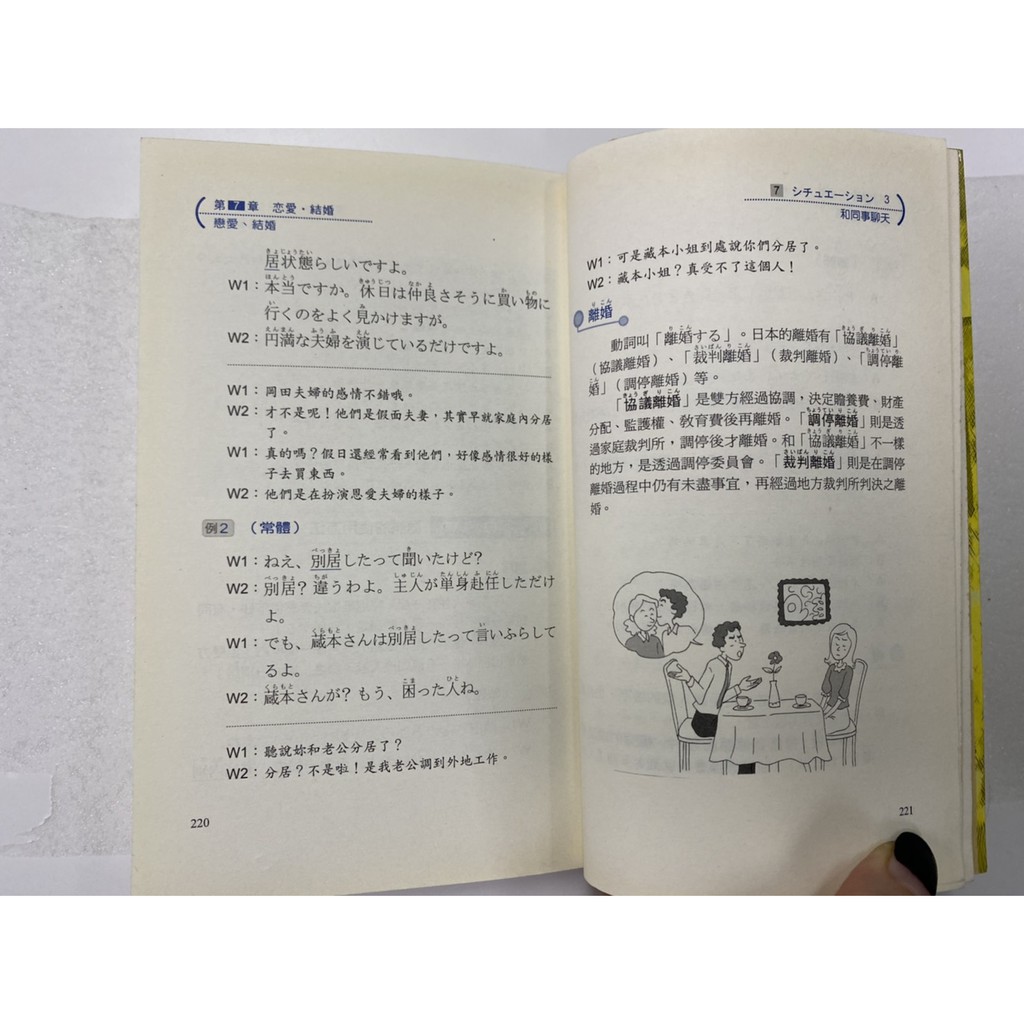 第7章 恋愛・結婚
戀愛、結婚
居状態らしいですよ。
W1：本当ですか。休日は仲良さそうに買い物に
行くのをよく見かけますが。
W2：円満な夫婦を演じているだけですよ。
W1：岡田夫婦的感情不錯哦。
W2：才不是呢！他們是假面夫妻，其實早就家庭內分居
了。
W1：真的嗎？假日還經常看到他們，好像感情很好的樣
子去買東西。
W2：他們是在扮演恩愛夫婦的樣子。
例2 （常體）
W1：ねえ、別居したって聞いたけど？
W2：別居？違うわよ。主人が単身赴任しただけ
よ。
W1：でも、蔵本さんは別居したって言いふらして
るよ。
W2：蔵本さんが？もう、困った人ね。
W1：聽說妳和老公分居了？
W2：分居？不是啦！是我老公調到外地工作。
220
7 シチュエーション 3
和同事聊天
W1：可是藏本小姐到處說你們分居了。
W2：藏本小姐？真受不了這個人！
離婚
動詞叫「離婚する」。日本的離婚有「協議離婚」
（協議離婚）、「裁判離婚」（裁判離婚）、「調停離
婚」（調停離婚）等。
「協議離婚」是雙方經過協調，決定贍養費、財產
分配、監護權、教育費後再離婚。「調停離婚」則是透
過家庭裁判所，調停後才離婚。和「協議離婚」不一樣
的地方，是透過調停委員會。「裁判離婚」則是在調停
離婚過程中仍有未盡事宜，再經過地方裁判所判決之離
婚。
221